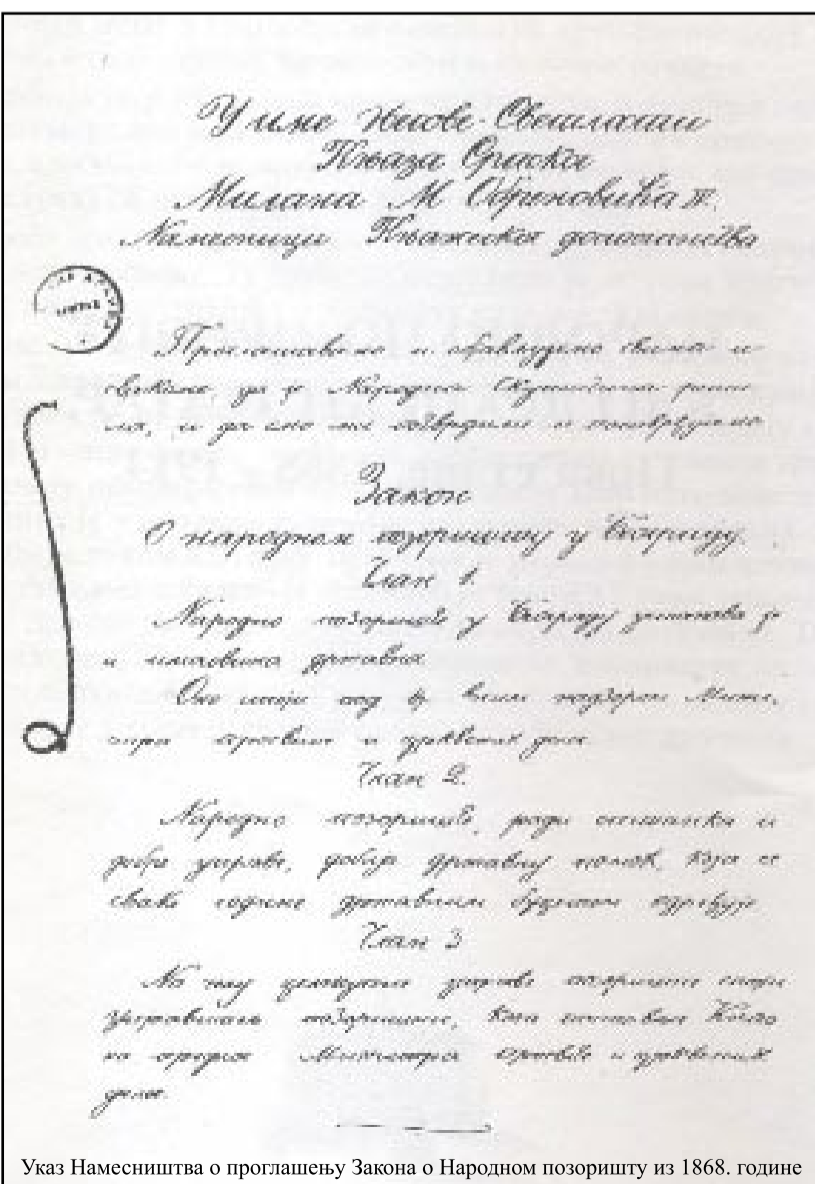 У име Његове Светлости
Књаза Српског
Милана М. Обреновића IV.
Намесници Књажеског достојанства
Проглашавамо и објављујемо свима и
свакоме да је Народна Скупштина
и да смо ми одобрили и потврђујемо
Закон
О народном позоришту у Београду.
Члан 1.
Народно позориште у Београду установа је
и имовина државна.
Оно стоји под надзором Мини-
стра просвете и црквених дела.
Члан 2.
Народно позориште, ради опстанка и
добре управе, добија државну помоћ, која се
сваке године државним буџетом одређује.
Члан 3
На челу целокупне управе позоришне стоји
управитељ позоришни, кога поставља Књаз
на предлог Министра просвете и црквених
дела.
Указ Намесништва о проглашењу Закона о Народном позоришту из 1868. године